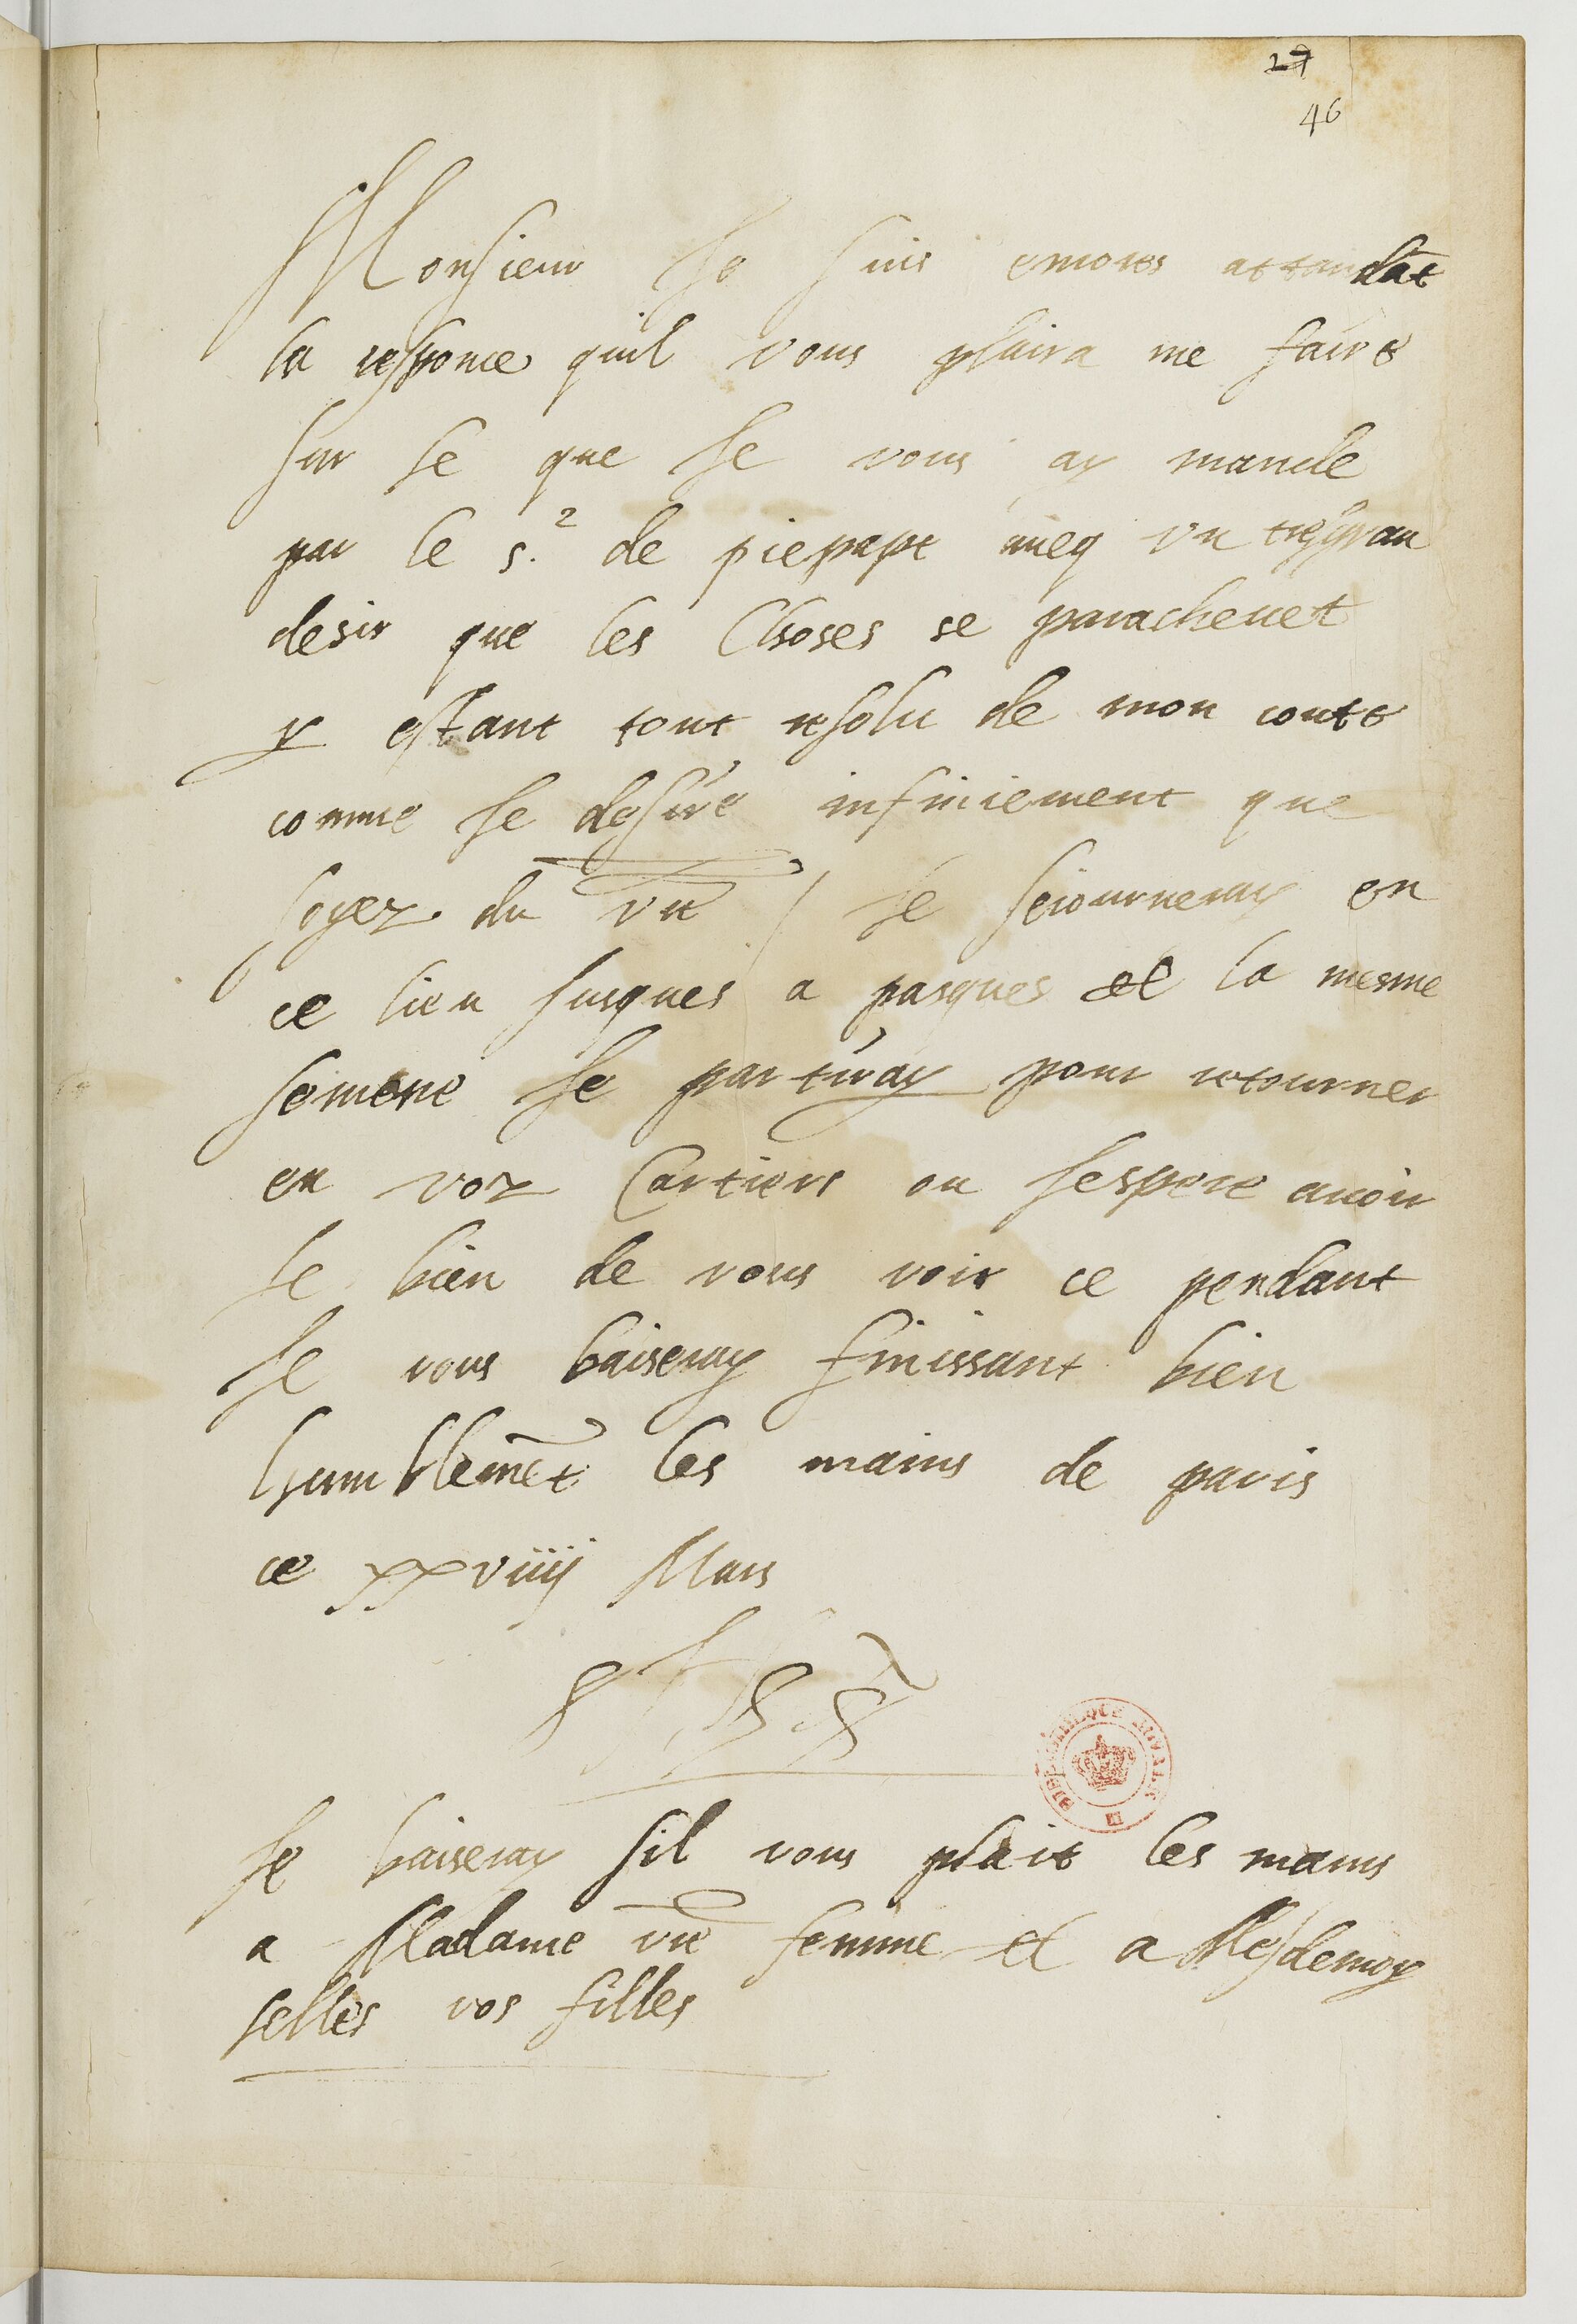 27
46
Monsieur Je suis encores attandāt
la responce quil vous plaira me faire
sur se que Je vous ay mande
par le s.r de piepape aueq vn tresgran
desir que les Choses se parachevēt
y estant tout resolu de mon coute
comme Je desire infiniement que
soyez du vre / Je seiourneray en
ce lieu Jusques a pasques et la mesme
semene Je partiray pour retourner
en voz Cartiers ou Jespere avoir
le bien de vous voir ce pendant
Je vous baiseray finissant bien
humblemēt les mains de paris
ce xxviiij Mars
Je baiseray sil vous plait les mains
a Madame vre femme et a Mesdemoy
selles vos filles